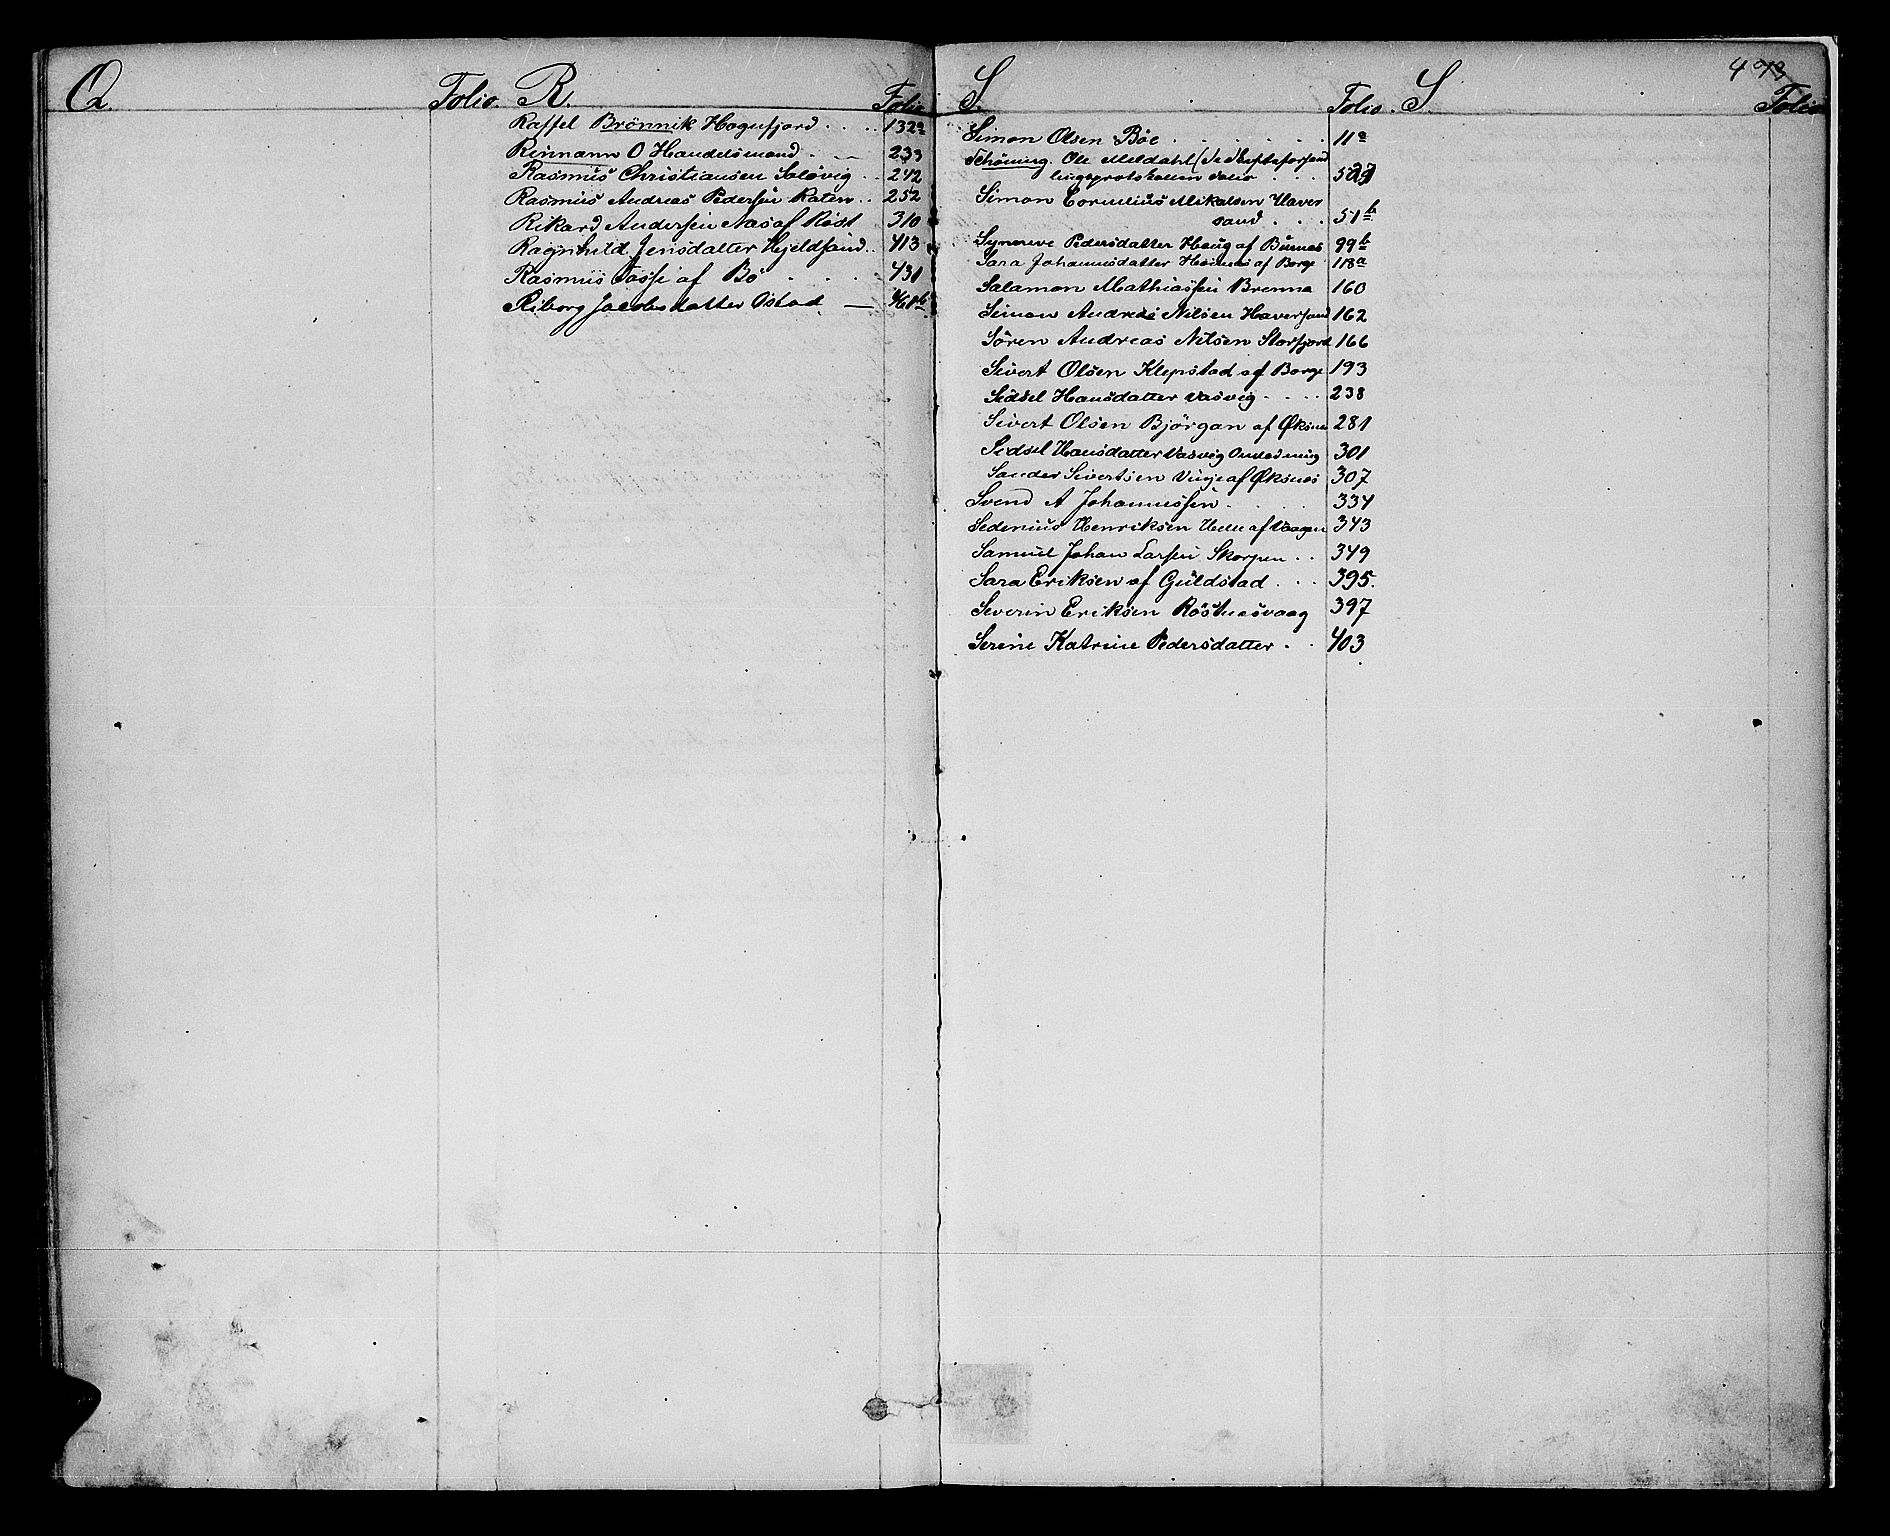 Q. Folio.
R. Folio
Raffel Brönnik Hognfjord . . . . 132a
Rinnann O Handelsmand . — 233
Rasmus Christiansen Solövig . . 242
Rasmus Andreas Pedersen Raten . . 252
Rikard Andersen Næs af Röst 310
Ragnhild Jensdatter Hjeldsand . . 413
Rasmus Tasse af Bö . . . . 431
Riborg Jacobsdatter Ostad — 461b
493
S. Folio.
Simon Olsen Böe . . . . . . 11a
Schöning. Ole Meldahl (Se Skifteforhand
lingsprotokollen . . .
Simon Cornelius Mikalsen Haver
sand . . . 51b
Synneve Pedersdatter Haug af Buknes 99b
Sara Johannesdatter af Borge 118a
Salamon Mathiassen Brenna 160
Simon Andreas Nilsen Haversand 162
Sören Andreas Nilsen Storfjord 166
Sivert Olsen Klepstad af Borge 193
Sidsel Hansdatter Vasvig . . . . 238
Sivert Olsen Björgan af Øksnes 281
Sidsel Hansdatter Vasvig 301
Sander Sivertsen Vinje af Øksnes 307
Svend A Johannessen . . . . 334
Sedenius Henriksen Helle af Vaagen 343
Samuel Johan Larsen Skorpen . . 349
Sara Eriksen af Guldstad . . . 395.
Severin Eriksen Röstnesvaag 397
Serine Katrine Pedersdatter . . 403
S. Folio